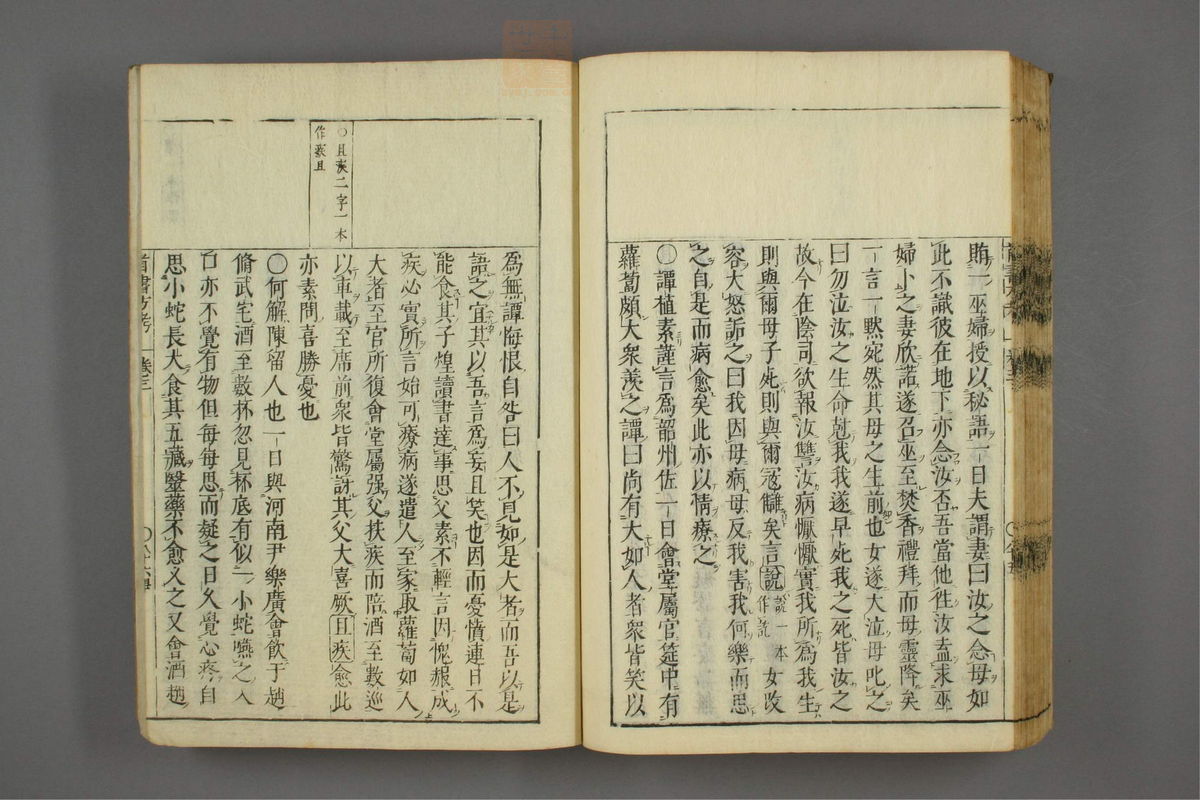 賄一巫婦授以秘語一日夫謂妻曰汝之念母如
此不識彼在地下亦念汝否吾當他徃汝盍求巫
婦卜之妻欣諾遂召巫至焚香禮拜而母靈降矣
一言一黙宛然其母之生前也女遂大泣母叱之
曰勿泣汝之生命尅我我遂早死我之死皆汝之
故今在陰司欲報汝讐汝病懨懨實我所為我生
則與爾母子死則與爾冦讎矣言說 說一本作訖 女改
容大怒詬之曰我因母病母反我害我何樂而思
之自是而病愈矣此亦以情療之
○譚植素謹言為韶州佐一日會堂屬官筵中有
蘿蔔頗大衆羨之譚曰尚有大如人者衆皆笑以
為無譚悔恨自咎曰人不見如是大者而吾以是
語之宜其以吾言為妄且笑也因而憂憤連日不
能食其子煌讀書達事思父素不輕言因愧赧成
疾必實所言始可療病遂遣人至家取蘿蔔如人
大者至官所復會堂屬强父扶疾而陪酒至數巡
以車載至席前衆皆驚訝其父大喜厥且疾愈此
亦素問喜勝憂也
○何解陳留人也一日與河南尹樂廣會飲于趙
脩武宅酒至數杯忽見杯底有似一小蛇嚥之入
口亦不覺有物但每每思而疑之日久覺心疼自
思小蛇長大食其五藏醫藥不愈乂之又會酒趙
○且疾二字一本
作疾且
卷三